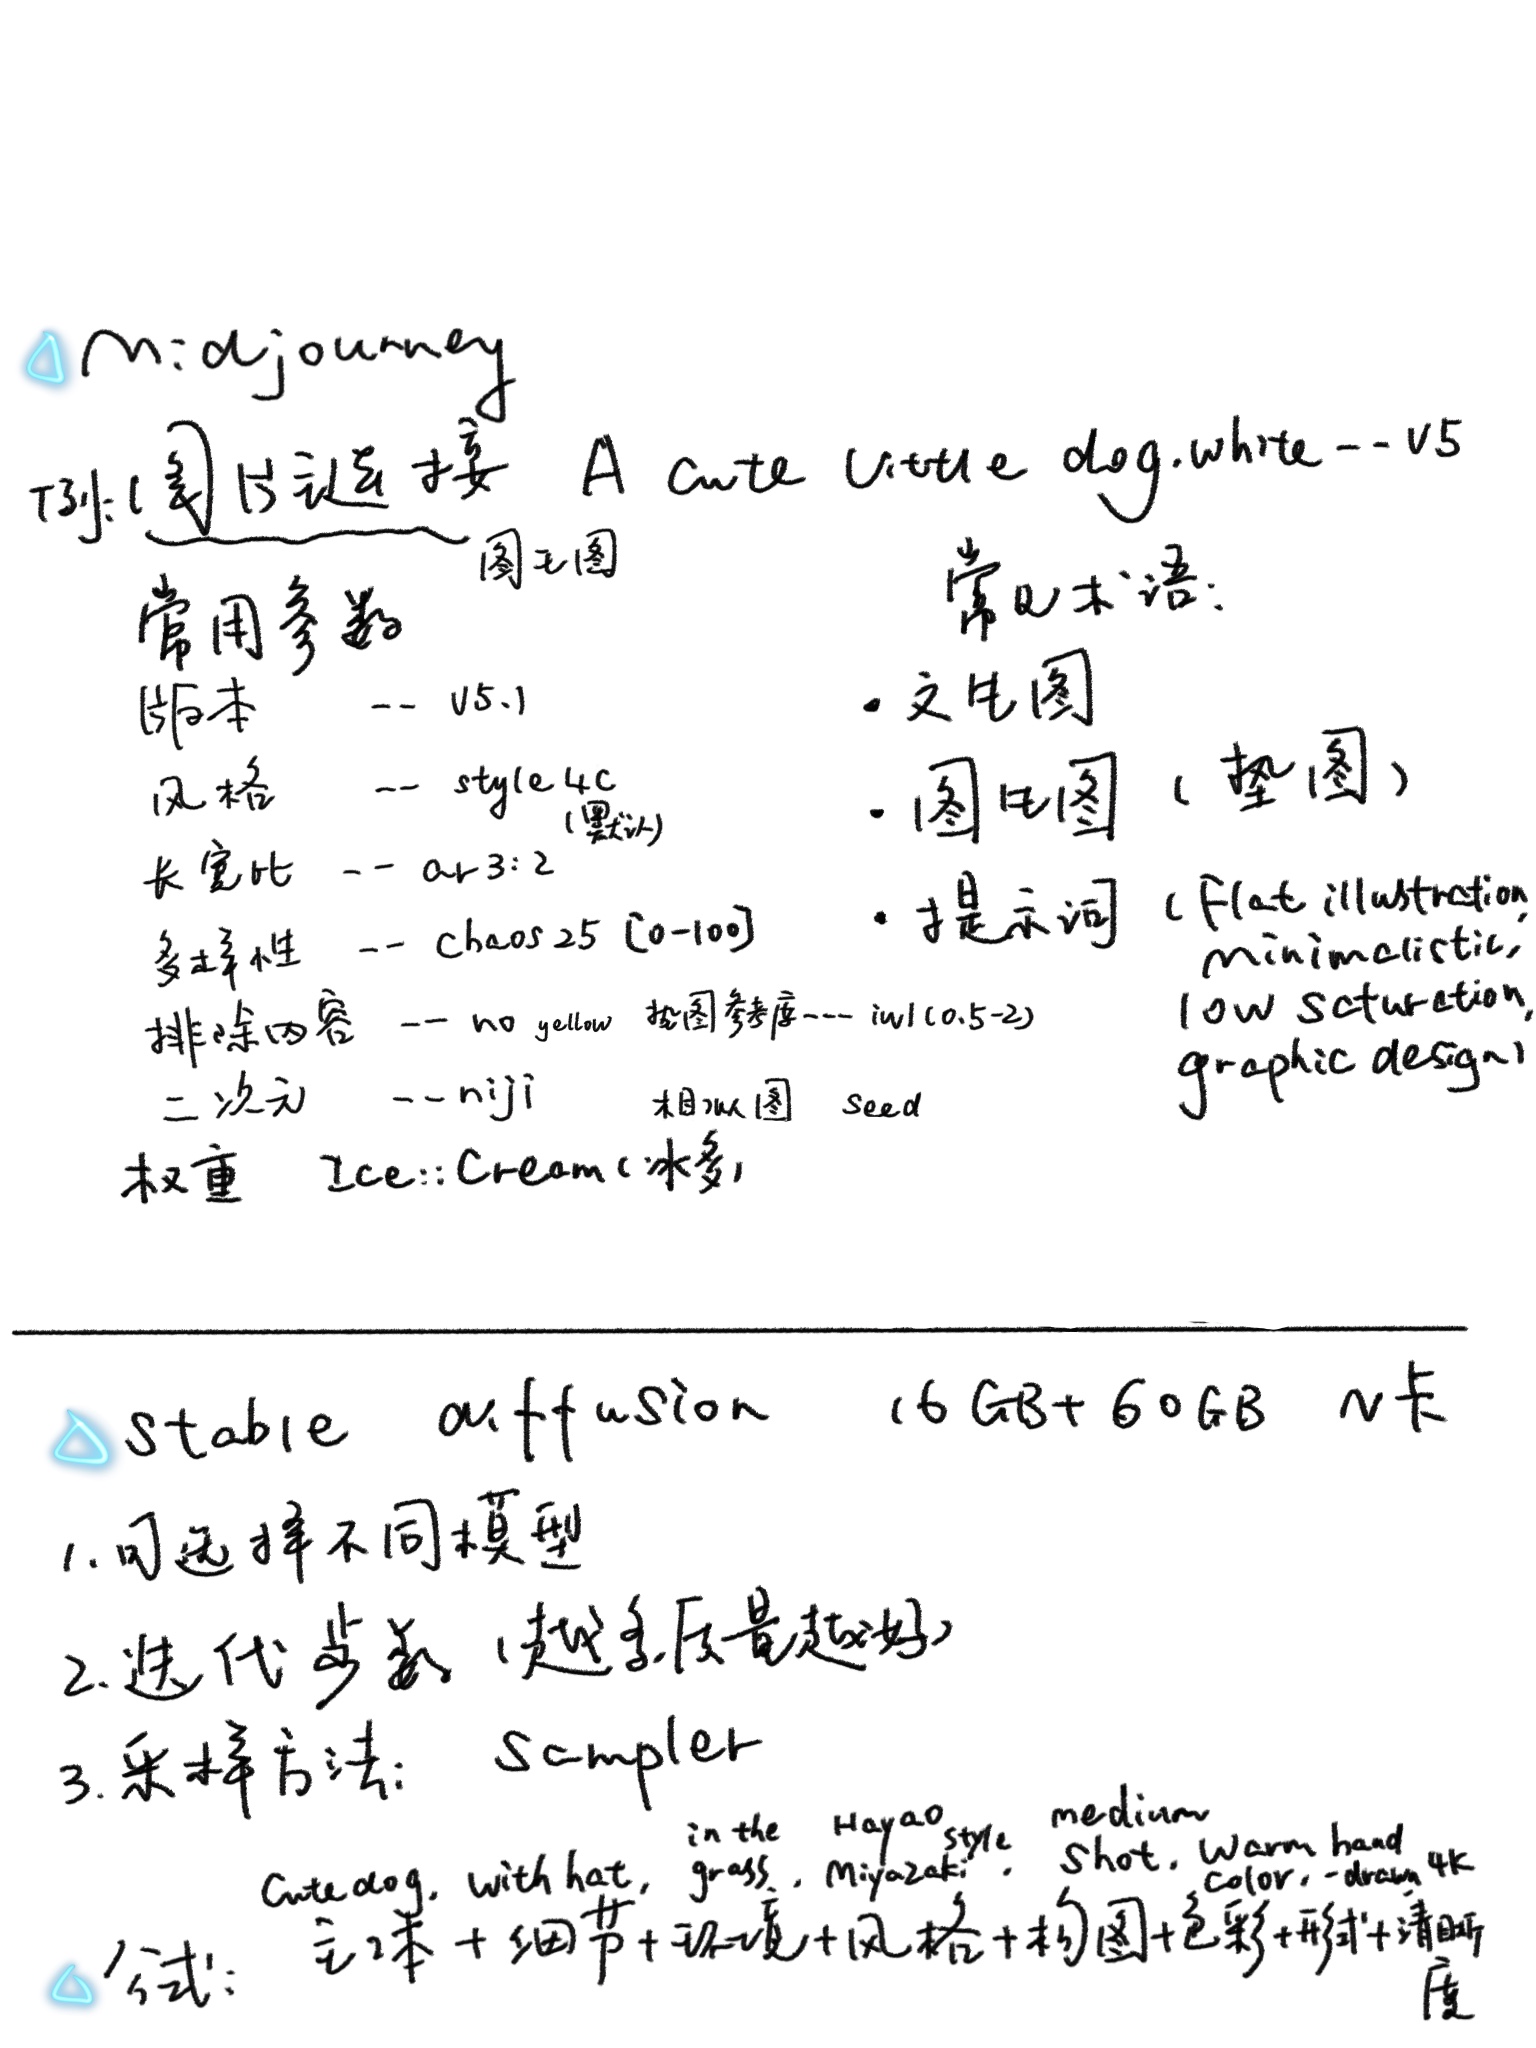 Midjourney
例:(图片链接 A cute little dog.white --v5
图生图
常用参数
版本 -- v5.1
风格 -- style 4c
(默认)
长宽比 -- ar 3:2
多样性 -- chaos 25 [0-100]
排除内容 -- no yellow 垫图参考度--- iw1(0.5-2)
二次元 -- niji 相似图 seed
权重 Ice::Cream(冰多)
常见术语:
· 文生图
· 图生图 (垫图)
· 提示词 (Flat illustration,
minimalistic,
low saturation,
graphic design)
Stable diffusion 16GB+60GB N卡
1.可选择不同模型
2.迭代步数 (越多,质量越好)
3.采样方法: Sampler
Cute dog, with hat, in the grass, Hayao Miyazaki style, medium shot, Warm color, hand-drawn, 4K
公式: 主体+细节+环境+风格+构图+色彩+形式+清晰
度